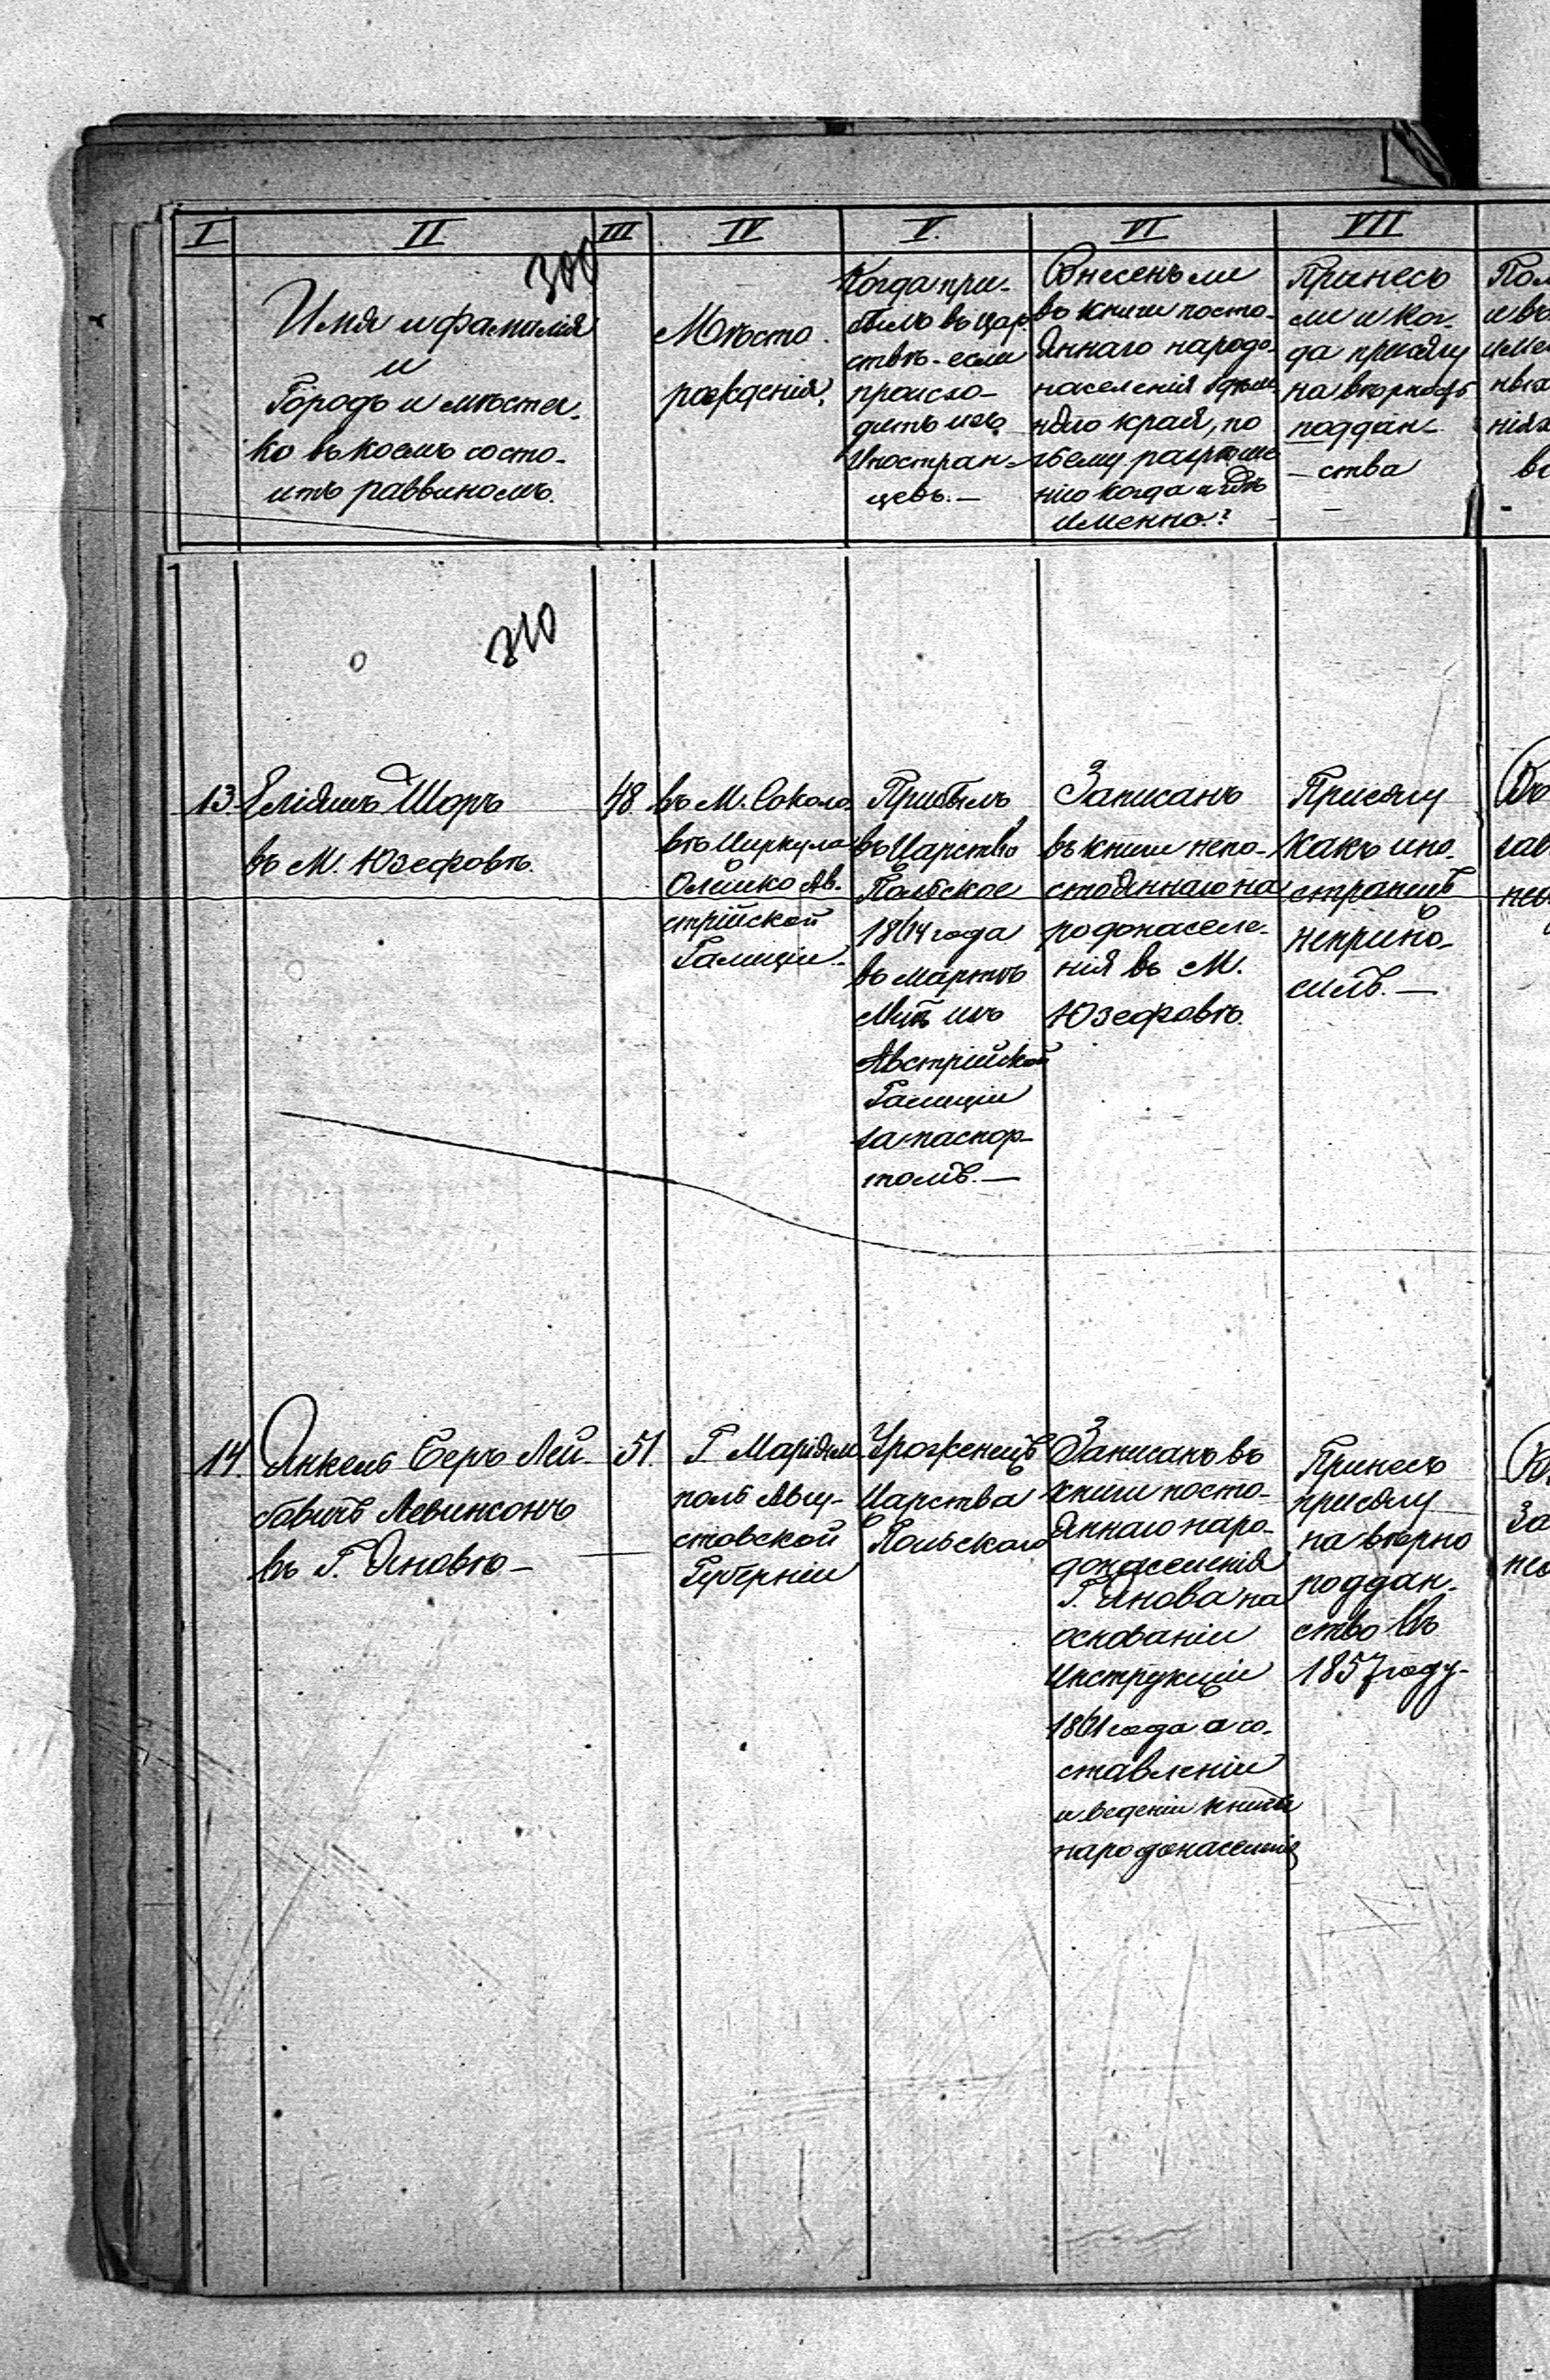 I II III IV V. VI VII
300
Имя и фамилія
и
Городъ и мѣстеч-
ко въ коемъ состо-
итъ раввиномъ.
Мѣсто
рожденія.
Когда при-
былъ въ Цар-
ствѣ - если
происхо-
дитъ изъ
Иностран-
цевъ. —
Внесенъ ли
въ книги посто-
яннаго народо-
населенія
края, по
чьему разрѣше-
нію когда и гдѣ
именно?
Принесъ
ли и ког-
да присягу
на вѣрность
поддан-
- ства
310
13.
Еліяшъ Шоръ
въ М. Юзефовѣ.
48.
въ М. Соколо-
вѣ Циркула
Олешко Ав-
стрійской
Галиціи.
Прибылъ
въ Царство
Польское
1864 года
въ мартѣ
Мцѣ изъ
Австрійской
Галиціи
за паспор-
томъ. —
Записанъ
въ книги непо-
стояннаго на
родонаселе-
нія въ М.
Юзефовѣ.
Присягу
какъ ино-
странецъ
неприно-
силъ. —
14.
Янкель Беръ Лей-
бовичъ Левинсонъ
въ Г. Яновѣ -
51.
Г. Маріям-
поль Авгу-
стовской
Губерніи
Уроженецъ
Царства
Польскаго
Записанъ въ
книги посто-
яннаго наро-
донаселенія
Г. Янова на
основаніи
Инструкціи
1861 года о со-
ставленіи
и веденіи книгъ
народонаселенія
Принесъ
присягу
на вѣрно
поддан-
ство въ
1857 году -